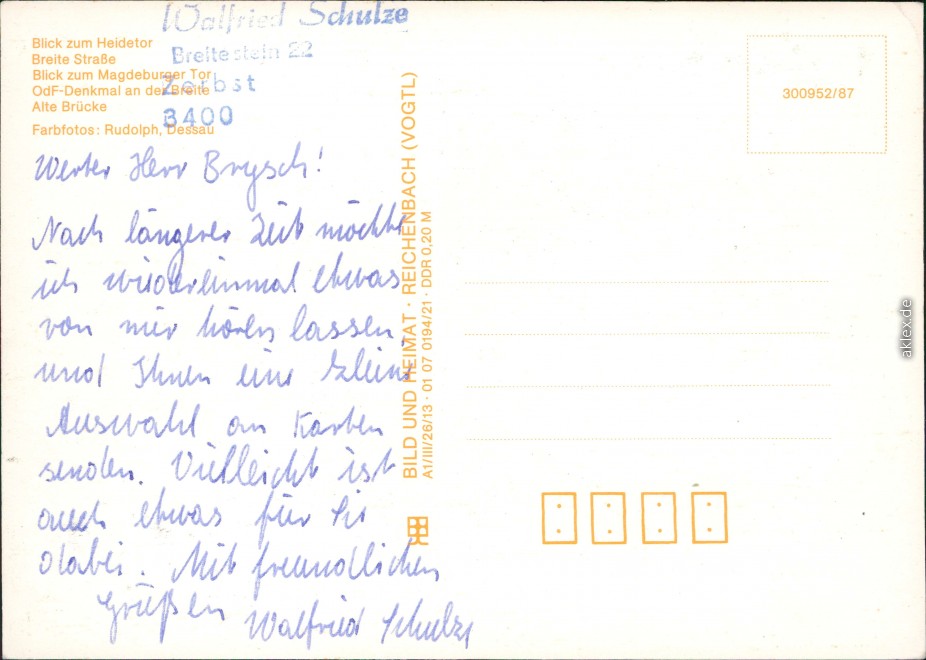 Walfried Schulze
Breitestein 22
Zerbst
3400
Blick zum Heidetor
Breite Straße
Blick zum Magdeburger Tor
OdF-Denkmal an der Breite
Alte Brücke
Farbfotos: Rudolph, Dessau
Werter Herr Brysch!
Nach längerer Zeit möchte
ich wiedereinmal etwas
von mir hören lassen,
und Ihnen eine kleine
Auswahl an Karten
senden. Vielleicht ist
auch etwas für Sie
dabei. Mit freundlichen
Grüßen Walfried Schulze
BILD UND HEIMAT · REICHENBACH (VOGTL)
A1/III/26/13 · 01 07 0194/21 · DDR 0,20 M
300952/87
aklex.de